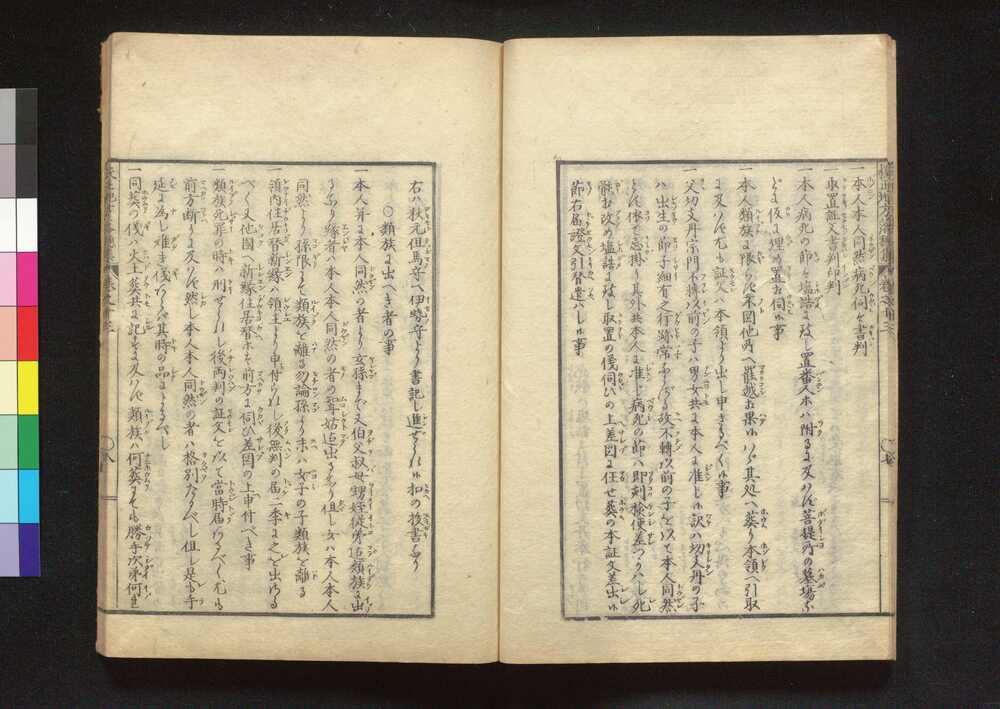 一本人本人同然病死伺ひ書判
取置証文書判印判
一本人病死の節ハ塩詰に致し置番人ホハ附るに及ハす菩提所の墓場
どに仮に埋め置お伺ゆ事
一本人類族に限らす来国他所へ罷越お果ゆハゝ其処へ葬り本領へ引取
に及ハす尤も証文ハ本領より出し申さるべくゆ事
一父切支丹宗門不轉以前の子ハ男女共に本人に准しゆ訳ハ切支丹の子
ハ出生の節子細有之行跡常
故不轉以前の子を以て本人同然
其外共本人に准し病死の節ハ即刻検使差つかハし死
骸お改め塩詰に致し取置の儀伺ひの上差図に任せ葬の本証文差出ゆ
節右届證文引替遣ハしゆ事
右ハ秋元但馬守へ伊勢守より書記し進せられゆ扣の抜書なり
〇類族に出へき者の事
一本人并に本人同然の者より玄孫まて又伯父叔母甥姪従弟迄類族に出
るなり縁者ハ本人本人同然の者の聟舅姑迄出るなり但し女ハ本人本人
同然より孫限りにて類族を離る勿論孫より末ハ女子の子類族を離る
一領内住居替新縁ハ領主より申付られし後無判の届二季に之を出さる
べく又他国へ新縁住居替ホを前方に伺ひ差図の上申付べき事
一類族死罪の時ハ刑せられし後両判の証文を以て當時届らるべし尤も
前方断りに及ハす然し本人本人同然の者ハ格別たるべし但し是も手
延に為し難き儀ハ其時の品によるべし
一同葬の儀ハ火土葬共に記すに及ハす類族ハ何葬にても勝手次第何れ